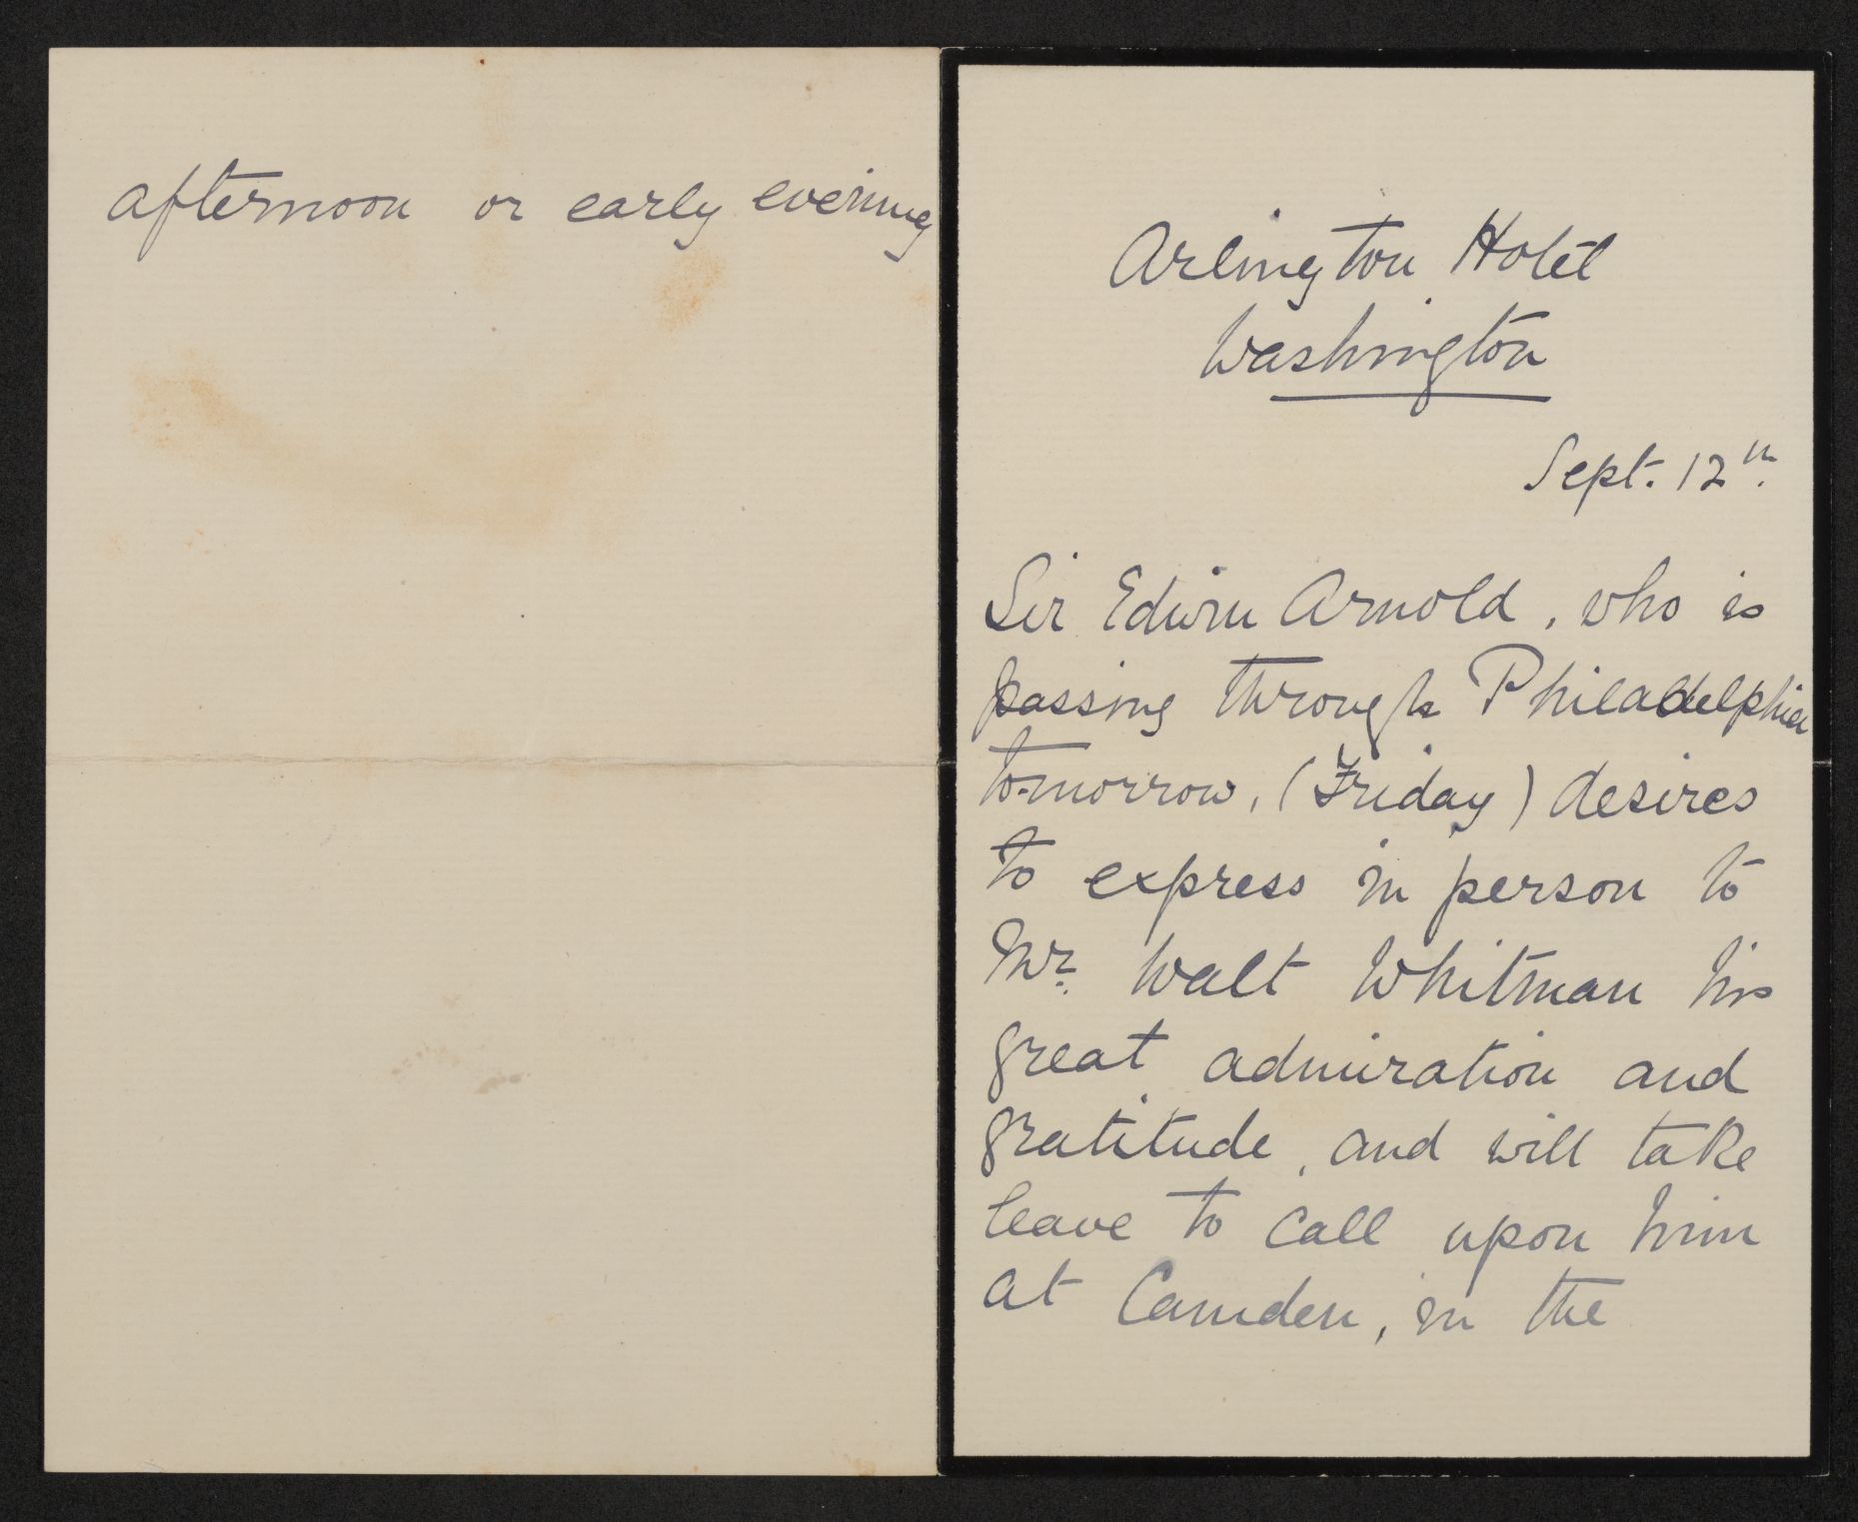 Arlington Hotel
Washington
Sept. 12th.
Sir Edwin Arnold, who is
passing through Philadelphia
to-morrow, (Friday) desires
to express in person to
Mr. Walt Whitman his
great admiration and
gratitude, and will take
leave to call upon him
at Camden, in the
afternoon or early evening